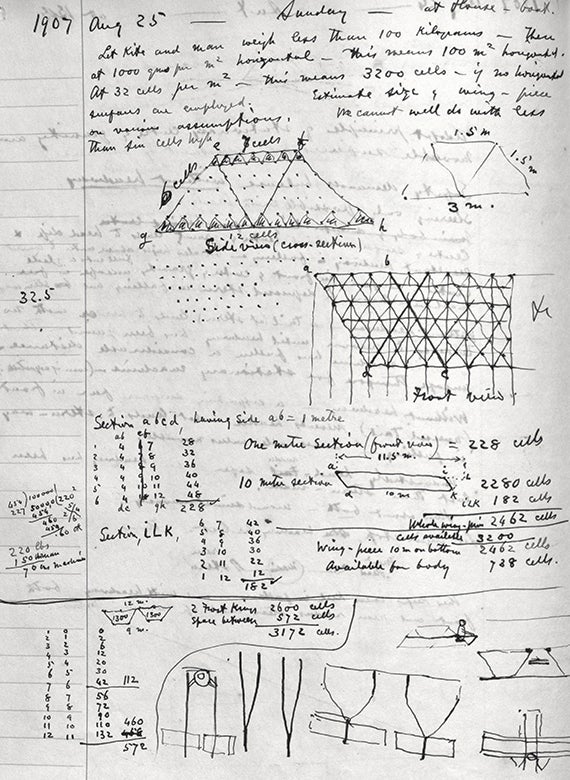 1907 Aug 25 — Sunday — at House-boat.
Let Kite and man weigh less than 100 Kilograms — Then
at 1000 gms per m² horizontal — this means 100 m² horizontal.
At 32 cells per m² — this means 3200 cells — if no horizontal
surfaces are employed. Estimate size of wing-piece
on various assumptions. We cannot well do with less
than six cells high
e 7 cells f
6 cells
g 12 cells h
Side view (cross-section)
1.5 m
1.5 m
3 m.
32.5
a b
d c
Front view
Section abcd, having side ab = 1 metre
ab ef
1 4 7 28
2 4 8 32
3 4 9 36
4 4 10 40
5 4 11 44
6 4 12 48
dc gh 228
One metre section (front view) = 228 cells
11.5 m.
a i
10 metre section
d 10 m. k
2280 cells
iLK 182 cells
Whole wing-piece 2462 cells
Cells available 3200
Wing-piece 10 m on bottom 2462 cells
Available for body 738 cells.
Section, iLK,
6 7 42
5 8 40
4 9 36
3 10 30
2 11 22
1 12 12
182
220 lbs
150 human
70 lbs machine
12 m.
1300 1300
9 m.
2 Front Kings 2600 cells
Space between 572 cells
3172 cells.
1 0 0
2 1 2
3 2 6
4 3 12
5 4 20
6 5 30
7 6 42 112
8 7 56
9 8 72
10 9 90
11 10 110 460
12 11 132
572